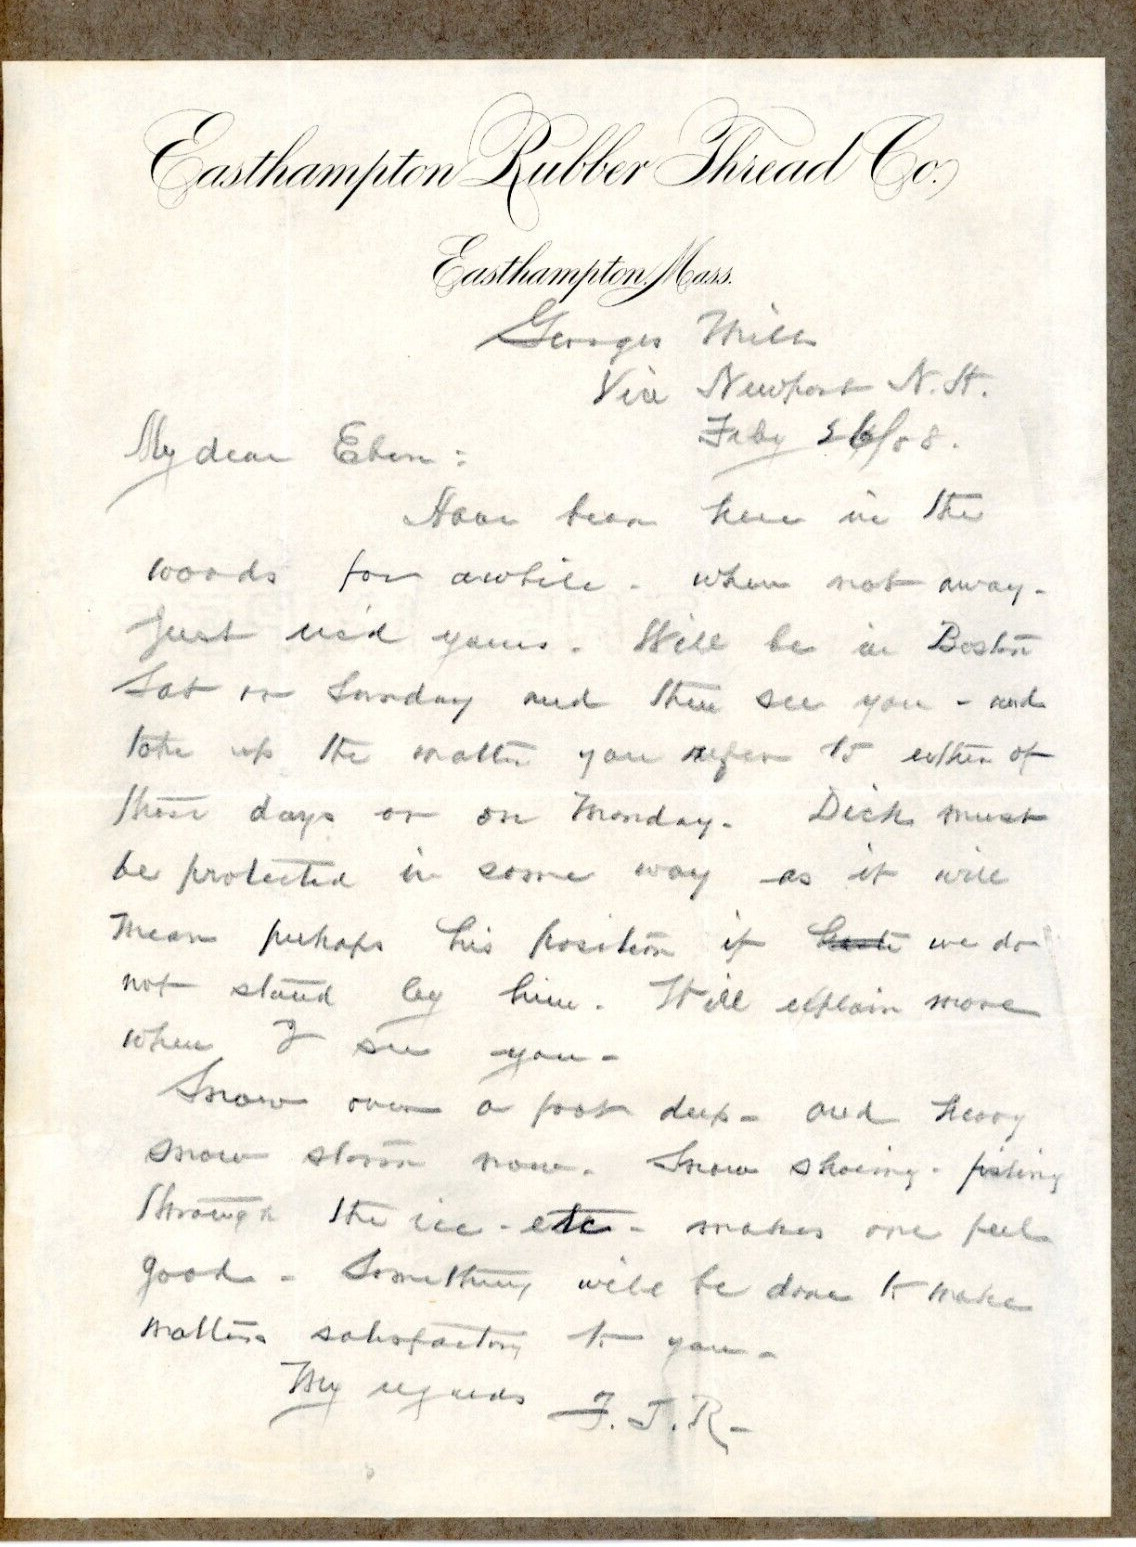 Easthampton Rubber Thread Co.
Easthampton, Mass.
Georges Mills
Via Newport N.H.
Feby 26/08.
My dear Eben:
Have been here in the
woods for awhile - when not away -
Just rec'd yours. Will be in Boston
Sat or Sunday and then see you - and
take up the matter you refer to either of
those days or on Monday. Dick must
be protected in some way as it will
mean perhaps his position if we do
not stand by him. Will explain more
when I see you -
Snow over a foot deep - and heavy
snow storm now. Snow shoeing - fishing
through the ice - etc - makes one feel
good - Something will be done to make
matters satisfactory to you -
My regards F.J.R -